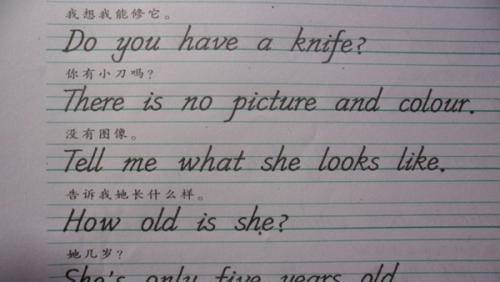 我想我能修它。
Do you have a knife?
你有小刀吗?
There is no picture and colour.
没有图像。
Tell me what she looks like.
告诉我她长什么样。
How old is she?
她几岁?
She's only five years old